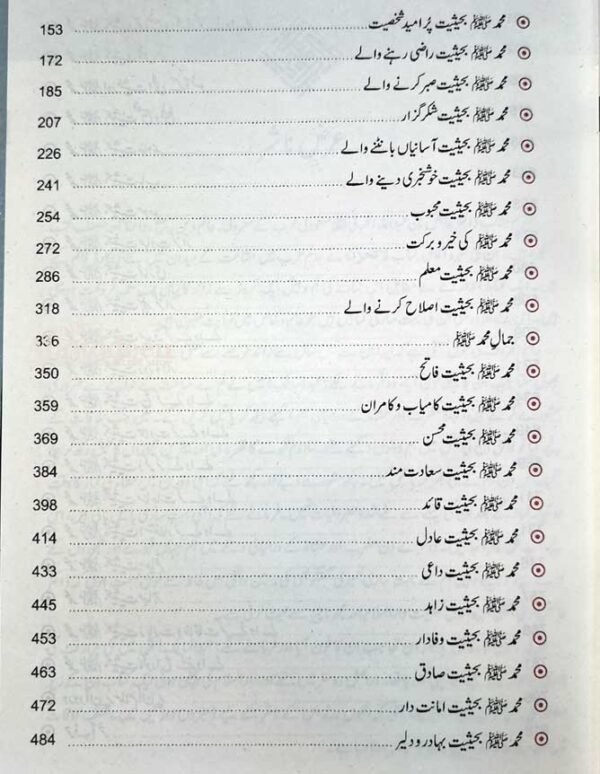 محمد ﷺ بحیثیت پُر امید شخصیت ........ 153
محمد ﷺ بحیثیت راضی رہنے والے ........ 172
محمد ﷺ بحیثیت صبر کرنے والے ........ 185
محمد ﷺ بحیثیت شکر گزار ........ 207
محمد ﷺ بحیثیت آسانیاں بانٹنے والے ........ 226
محمد ﷺ بحیثیت خوشخبری دینے والے ........ 241
محمد ﷺ بحیثیت محبوب ........ 254
محمد ﷺ کی خیر و برکت ........ 272
محمد ﷺ بحیثیت معلم ........ 286
محمد ﷺ بحیثیت اصلاح کرنے والے ........ 318
جمالِ محمد ﷺ ........ 336
محمد ﷺ بحیثیت فاتح ........ 350
محمد ﷺ بحیثیت کامیاب و کامران ........ 359
محمد ﷺ بحیثیت محسن ........ 369
محمد ﷺ بحیثیت سعادت مند ........ 384
محمد ﷺ بحیثیت قائد ........ 398
محمد ﷺ بحیثیت عادل ........ 414
محمد ﷺ بحیثیت داعی ........ 433
محمد ﷺ بحیثیت زاہد ........ 445
محمد ﷺ بحیثیت وفادار ........ 453
محمد ﷺ بحیثیت صادق ........ 463
محمد ﷺ بحیثیت امانت دار ........ 472
محمد ﷺ بحیثیت بہادر و دلیر ........ 484